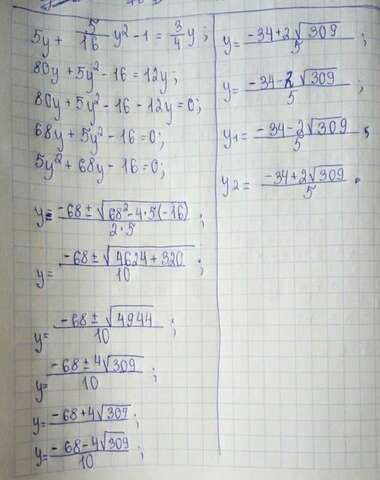 5y + 5/16 y² - 1 = 3/4 y;
80y + 5y² - 16 = 12y;
80y + 5y² - 16 - 12y = 0;
68y + 5y² - 16 = 0;
5y² + 68y - 16 = 0;
y = (-68 ± √(68² - 4·5(-16)))/(2·5);
y = (-68 ± √(4624 + 320))/10;
y = (-68 ± √4944)/10;
y = (-68 ± 4√309)/10;
y = (-68 + 4√309)/10;
y = (-68 - 4√309)/10;
y = (-34 + 2√309)/5;
y = (-34 - 2√309)/5;
y1 = (-34 - 2√309)/5,
y2 = (-34 + 2√309)/5.